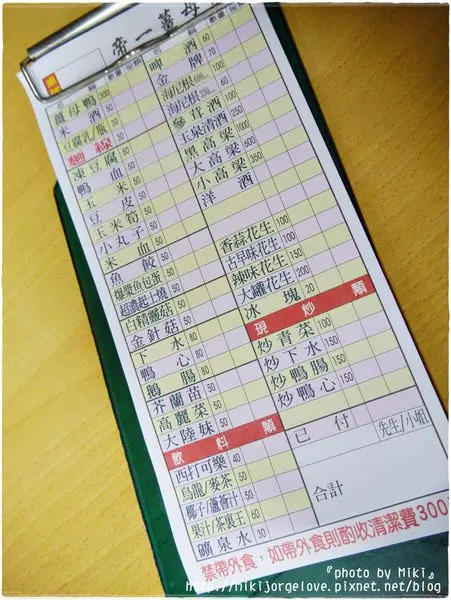 帝一薑母
薑母鴨 300
米酒 50
豆腐乳/瓶 30
麵線 30
凍豆腐 50
鴨血 50
玉米 50
豆皮 50
玉米筍 50
小丸子 50
米血 50
魚餃 50
爆漿魚包蛋 50
超濃起士燒 50
白精靈菇 50
金針菇 50
下水 80
鴨心 80
鵝腸 80
芥蘭苗 50
高麗菜 50
大陸妹 50
飲料類
西打可樂 40
烏龍/麥茶 50
椰子/蘆薈汁 50
果汁/茶裏王 60
礦泉水 30
啤酒 60
金牌 70
海尼根
海尼根
參茸酒 100
玉泉清酒 250
黑高粱 100
大高粱 600
小高粱 350
洋酒
香蒜花生 100
古早味花生 100
辣味花生 150
大罐花生 150
冰塊 20
現炒類
炒青菜 100
炒下水 150
炒鴨腸 150
炒鴨心 150
已付
先生/小姐
合計
禁帶外食，如帶外食則酌收清潔費300
『photo by Miki』
http://mikijorgelove.pixnet.net/blog